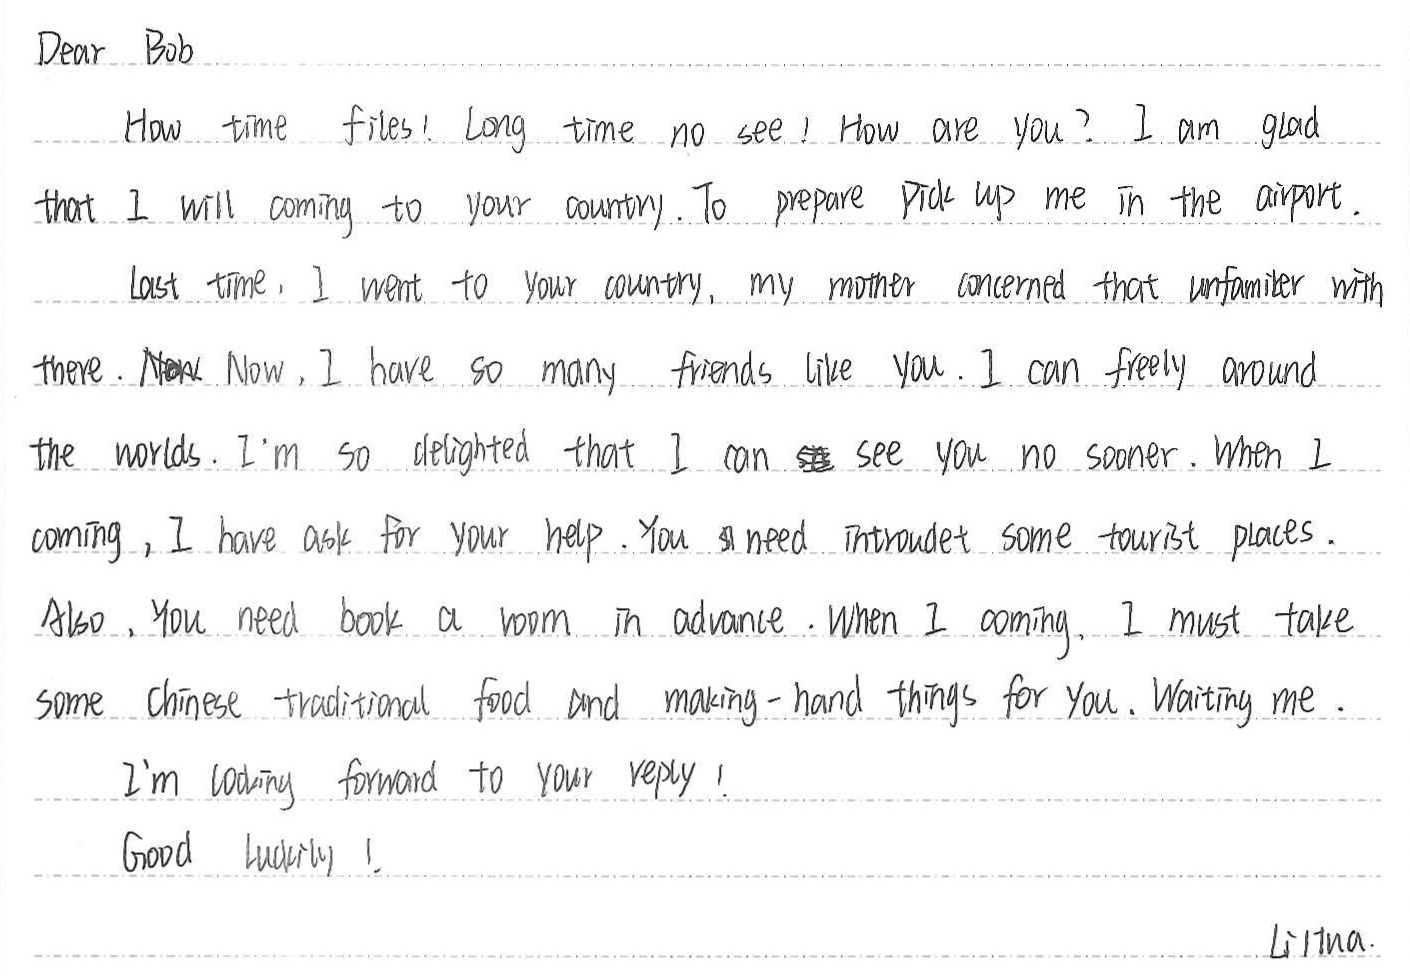 Dear Bob
How time files! Long time no see! How are you? I am glad
that I will coming to your country. To prepare pick up me in the airport.
Last time, I went to your country, my mother concerned that unfamiler with
there. Now, I have so many friends like you. I can freely around
the worlds. I'm so delighted that I can see you no sooner. When I
coming, I have ask for your help. You need introudet some tourist places.
Also, You need book a room in advance. When I coming, I must take
some Chinese traditional food and making-hand things for you. Waiting me.
I'm looking forward to your reply!
Good Luckily!
Li